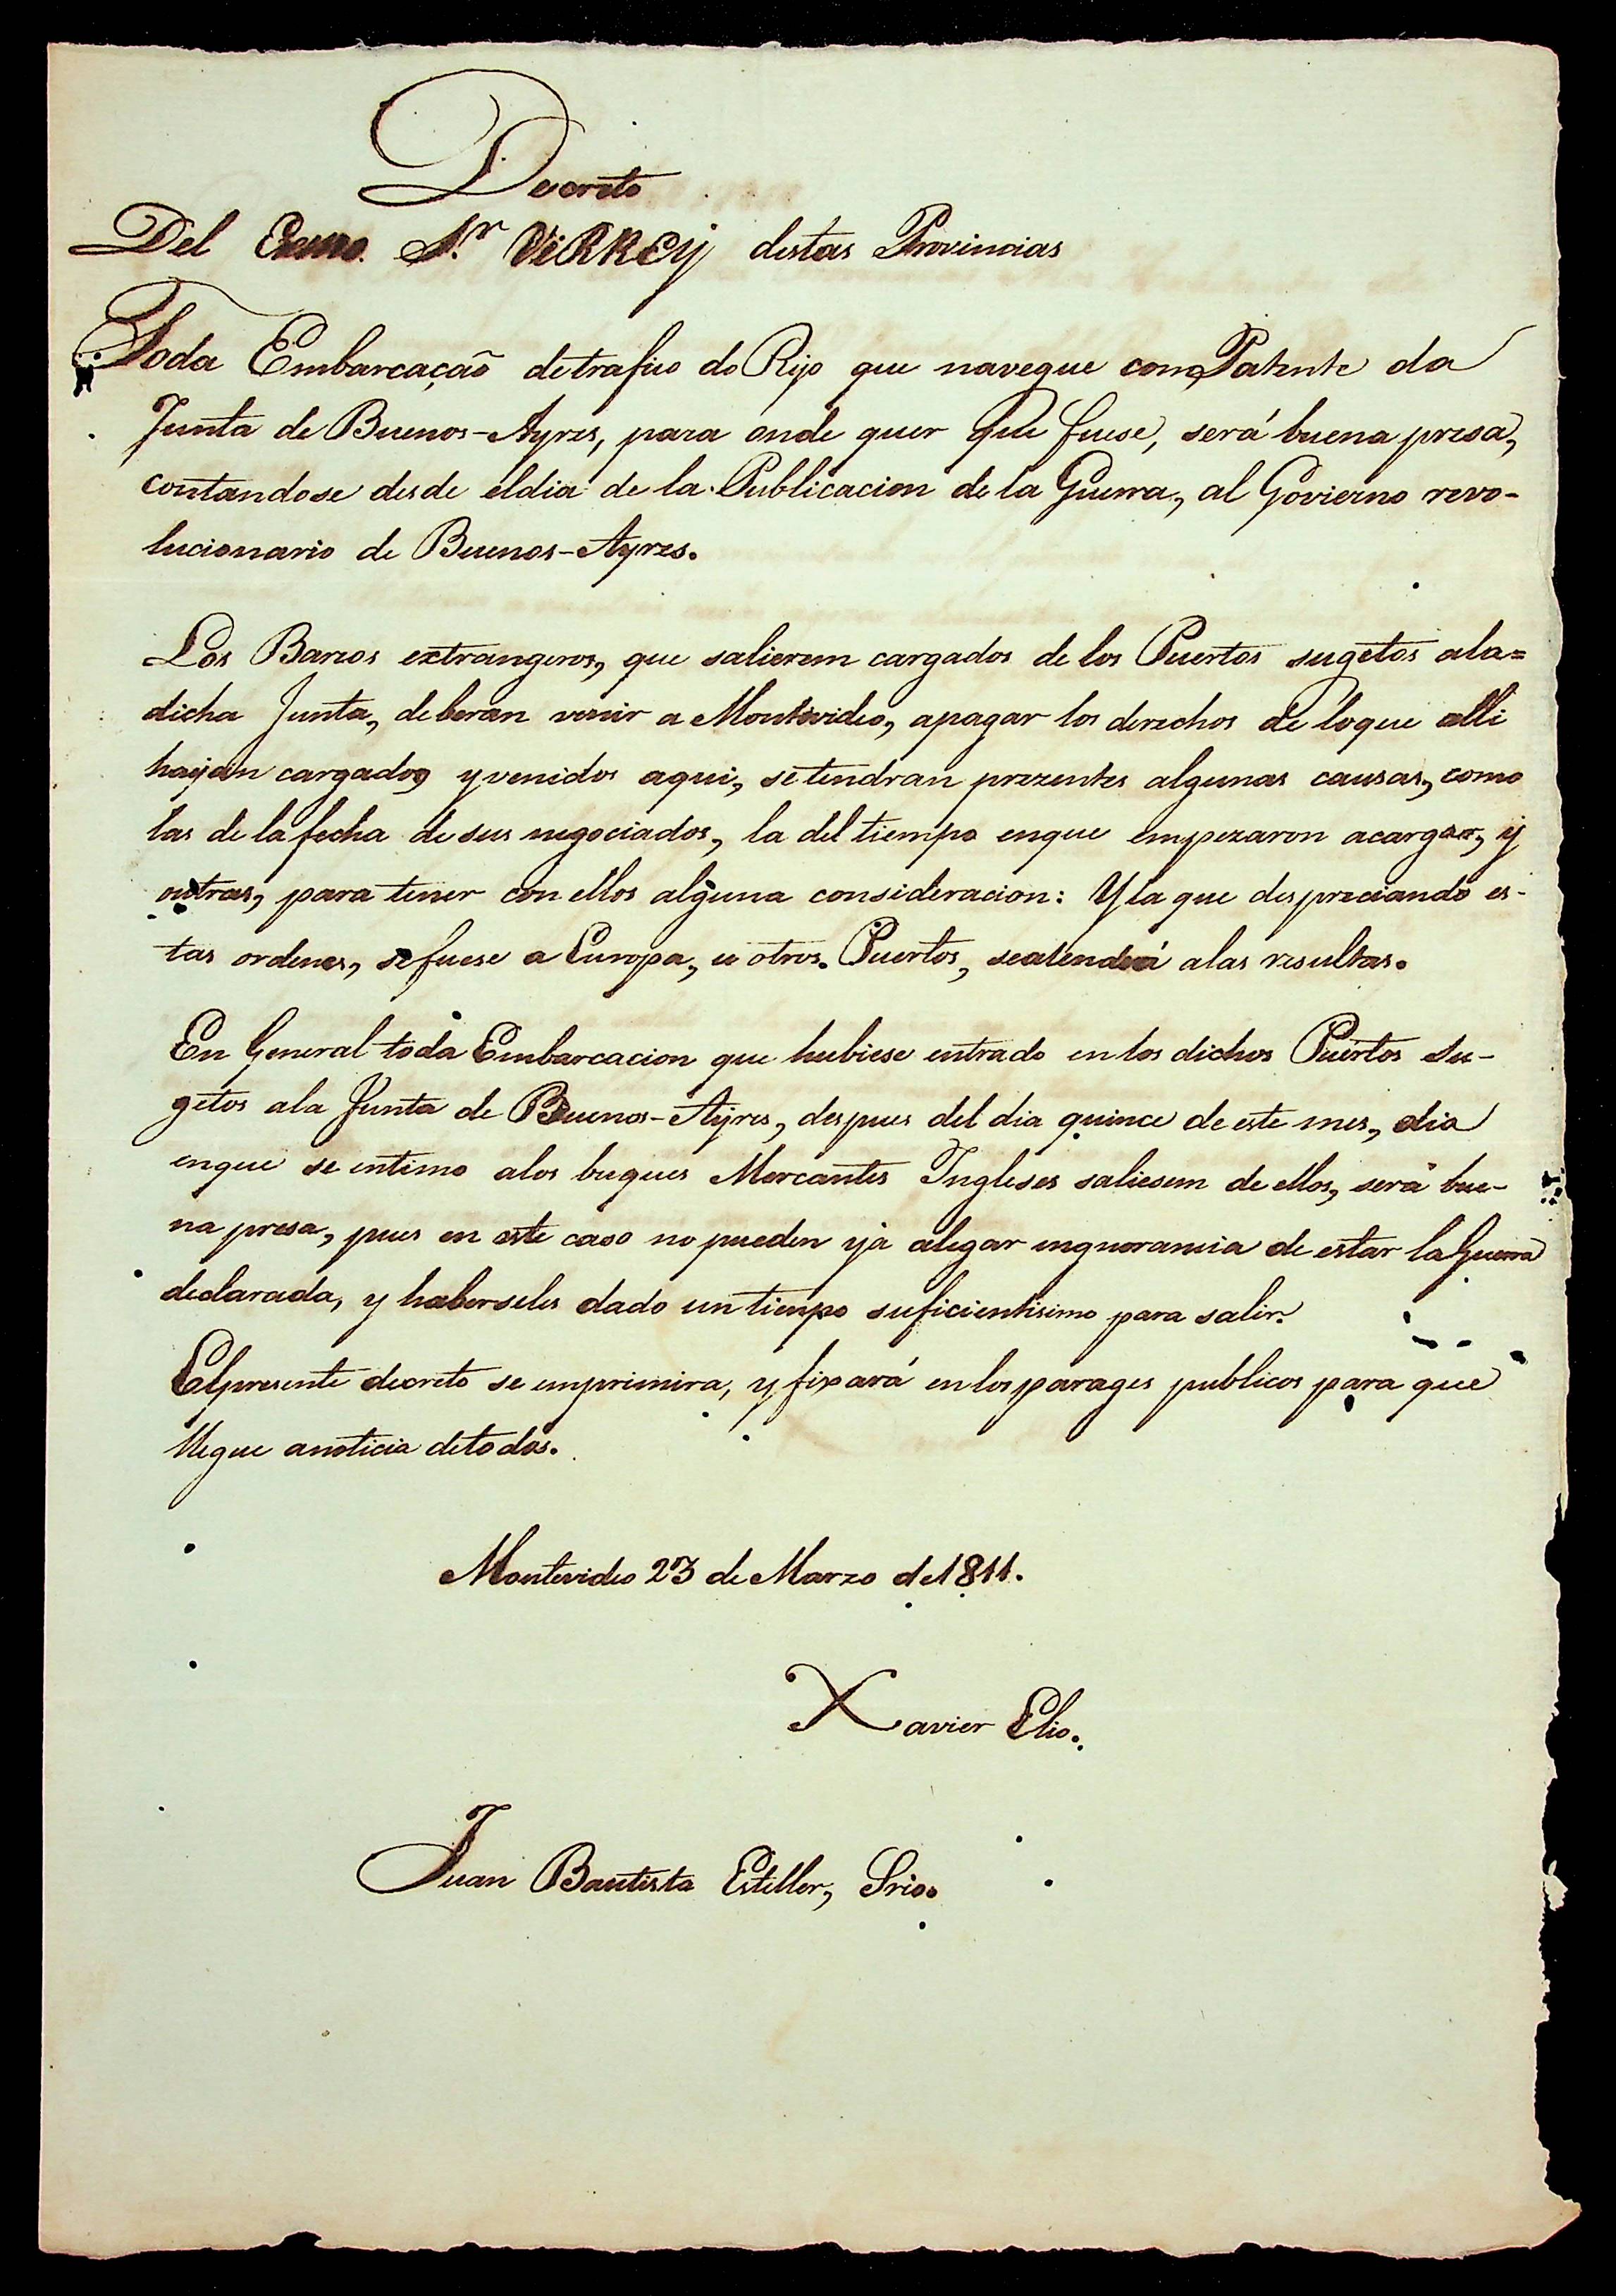 Decreto
Del Exmo. S.r ViRREy destas Provincias
Toda Embarcação detrafico do Rijo que navegue com Patente da
Junta de Buenos-Ayres, para onde quer que fuese, será buena presa,
contandose desde eldia de la Publicacion de la Guerra, al Govierno revo-
lucionario de Buenos-Ayres.
Los Barcos extrangeros, que salierem cargados de los Puertos sugetos ala=
dicha Junta, deberan venir a Montevideo, apagar los derechos de loque alli
hayan cargados yvenidos aqui, setendran prezentes algunas causas, como
las de lafecha desus negociados, la deltiempo enque empezaron acargar, y
outras, para tener con ellos alguna consideracion: Yla que despreciando es-
tas ordenes, sefuese a Europa, u otros Puertos, seatenderá alas resultas.
En General toda Embarcacion que hubiese entrado en los dichos Puertos su-
getos ala Junta de Buenos-Ayres, despues del dia quince de este mes, dia
enque se intimo alos buques Mercantes Ingleses saliesem de ellos, será bue-
na presa, pues en este caso no pueden yá alegar ingnorancia de estar la Guerra
declarada, y haberseles dado un tiempo suficientisimo para salir.
Elpresente decreto se imprimira, y fixará enlosparages publicos para que
llegue anoticia detodos.
Montevideo 23 de Marzo de1811.
Xavier Elio.
Juan Bautista Esteller, Srio.